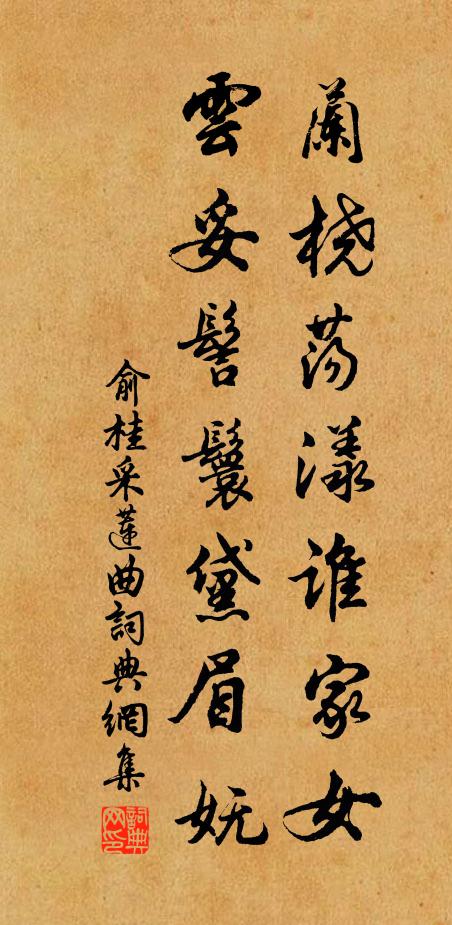 蘭桡蕩漾誰家女
雲妥髻鬟黛眉妩
俞桂采蓮曲詞典網集
詞典网印